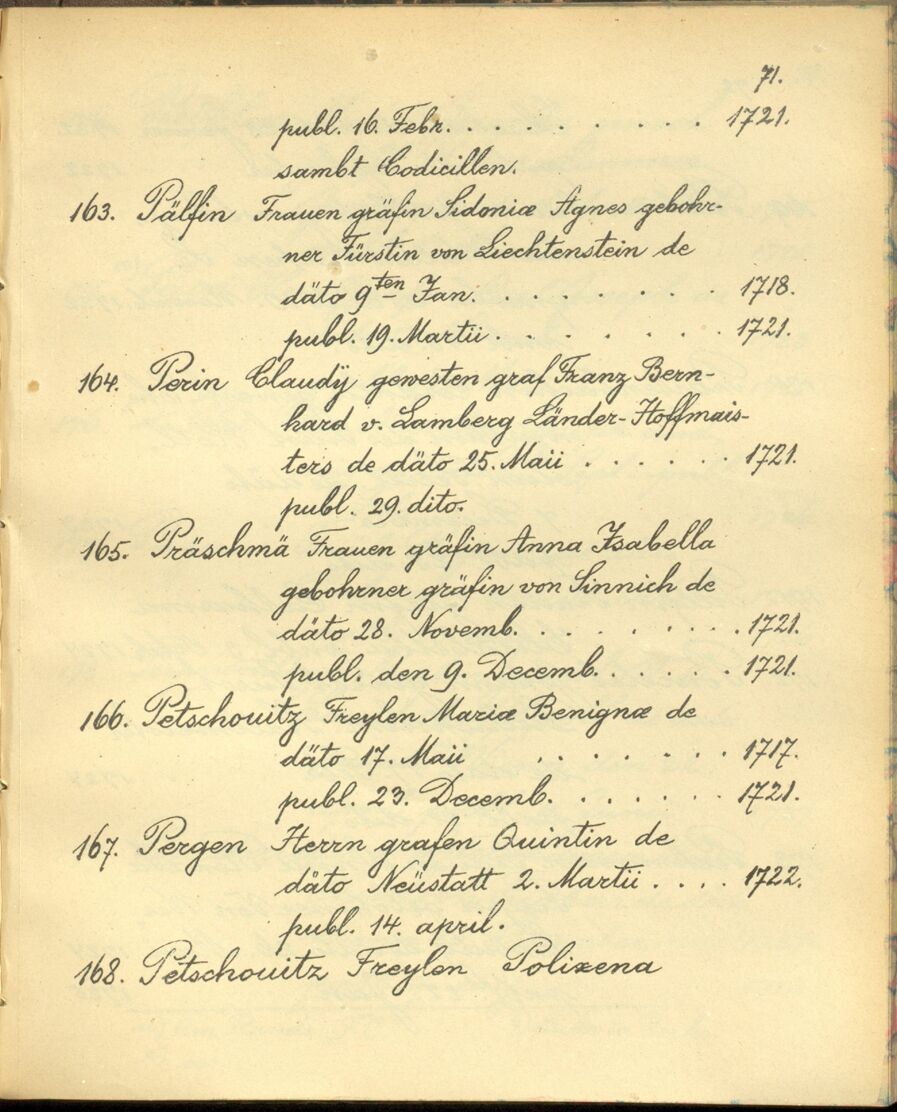 71.
publ. 16. Febr. . . . . . . . . . . 1721.
sambt Codicillen.
163. Pälfin Frauen gräfin Sidoniæ Agnes gebohr-
ner Fürstin von Liechtenstein de
däto 9ten Jan. . . . . . . . . . 1718.
publ. 19. Martii . . . . . . . . . 1721.
164. Perin Claudÿ gewesten graf Franz Bern-
hard v. Lamberg Länder-Hoffmais-
ters de däto 25. Maii . . . . . . 1721.
publ. 29. dito.
165. Präschmä Frauen gräfin Anna Isabella
gebohrner gräfin von Sinnich de
däto 28. Novemb. . . . . . . . . 1721.
publ. den 9. Decemb. . . . . . . 1721.
166. Petschouitz Freylen Mariæ Benignæ de
däto 17. Maii . . . . . . . 1717.
publ. 23. Decemb. . . . . . . 1721.
167. Pergen Herrn grafen Quintin de
däto Neüstatt 2. Martii . . . . 1722.
publ. 14. april.
168. Petschouitz Freylen Polixena